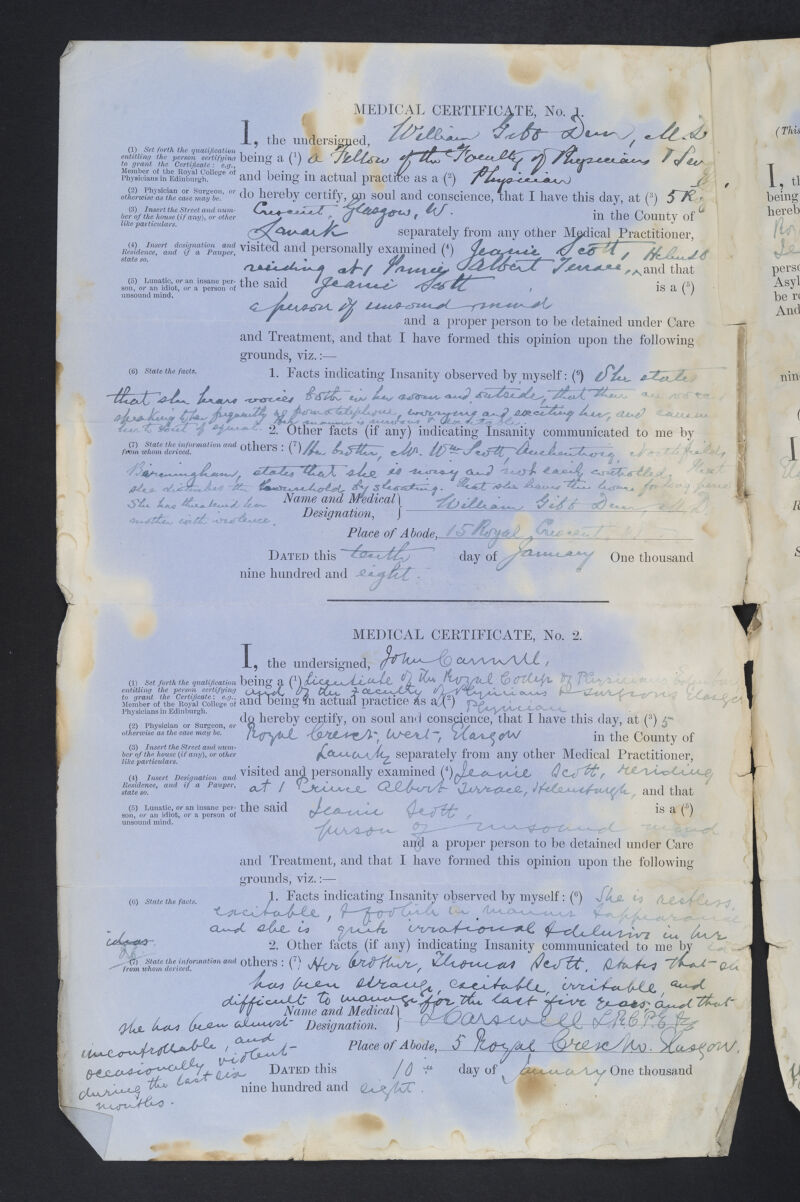 MEDICAL CERTIFICATE, No. 1.
I, the undersigned, William Gibb Dun, M.D.
(1) Set forth the qualification
entitling the person certifying
to grant the Certificate: e.g.,
Member of the Royal College of
Physicians in Edinburgh.
being a (1) a Fellow of the Faculty of Physicians &
(2) Physician or Surgeon, or
otherwise as the case may be.
and being in actual practice as a (2) Physician
do hereby certify, on soul and conscience, that I have this day, at (3) 5 R.
(3) Insert the Street and num-
ber of the house (if any), or other
like particulars.
Crescent, Glasgow, W. in the County of
Lanark separately from any other Medical Practitioner,
(4) Insert designation and
Residence, and if a Pauper,
state so.
visited and personally examined (4) Jeanie Scott,
residing at 1 Prince Albert Terrace, and that
(5) Lunatic, or an insane per-
son, or an idiot, or a person of
unsound mind.
the said Jeanie Scott is a (5)
a person of unsound mind
and a proper person to be detained under Care
and Treatment, and that I have formed this opinion upon the following
grounds, viz.:—
(6) State the facts.
1. Facts indicating Insanity observed by myself: (6) She states
that she hears voices both in her room and outside, that there are voices
speaking to her frequently as from a telephone, worrying and exciting her, and
her manner is nervous &
2. Other facts (if any) indicating Insanity communicated to me by
(7) State the information and
from whom derived.
others: (7) Her brother, Mr. Wm Scott, Northfield,
Birmingham, states that she is noisy and not easily controlled. That
she disturbs the household by shouting. That she leaves the house for long
She has threatened her
mother with violence.
Name and Medical
Designation, William Gibb Dun, M.D.
Place of Abode, 15 Royal Crescent, W.
DATED this tenth day of January One thousand
nine hundred and eight.
MEDICAL CERTIFICATE, No. 2.
I, the undersigned, John Carswell,
(1) Set forth the qualification
entitling the person certifying
to grant the Certificate: e.g.,
Member of the Royal College of
Physicians in Edinburgh.
being a (1) Licentiate of the Royal College of Physicians
and of the Faculty of Physicians & Surgeons Glasgow
and being in actual practice as a (2) Physician
(2) Physician or Surgeon, or
otherwise as the case may be.
do hereby certify, on soul and conscience, that I have this day, at (3) 5
Royal Cresct. West, Glasgow in the County of
(3) Insert the Street and num-
ber of the house (if any), or other
like particulars.
Lanark, separately from any other Medical Practitioner,
(4) Insert Designation and
Residence, and if a Pauper,
state so.
visited and personally examined (4) Jeanie Scott, residing
at 1 Prince Albert Terrace, Helensburgh, and that
(5) Lunatic, or an insane per-
son, or an idiot, or a person of
unsound mind.
the said Jeanie Scott, is a (5)
person of unsound mind
and a proper person to be detained under Care
and Treatment, and that I have formed this opinion upon the following
grounds, viz.:—
(6) State the facts.
1. Facts indicating Insanity observed by myself: (6) She is restless,
excitable, & foolish in manner & appearance
and she is quite irrational & delusive in her
ideas.
2. Other facts (if any) indicating Insanity communicated to me by
(7) State the information and
from whom derived.
others: (7) Her brother, Thomas Scott, states that she
has been strange, excitable, irritable, and
difficult to manage for the last five years and that
she has been almost
uncontrollable, and
occasionally violent
during the last six
months.
Name and Medical
Designation. J Carswell L.R.C.P.E.
Place of Abode, 5 Royal Cresc W. Glasgow.
DATED this 10th day of January One thousand
nine hundred and eight.
(This
I, t
being
hereb
perso
Asyl
be re
And
nin